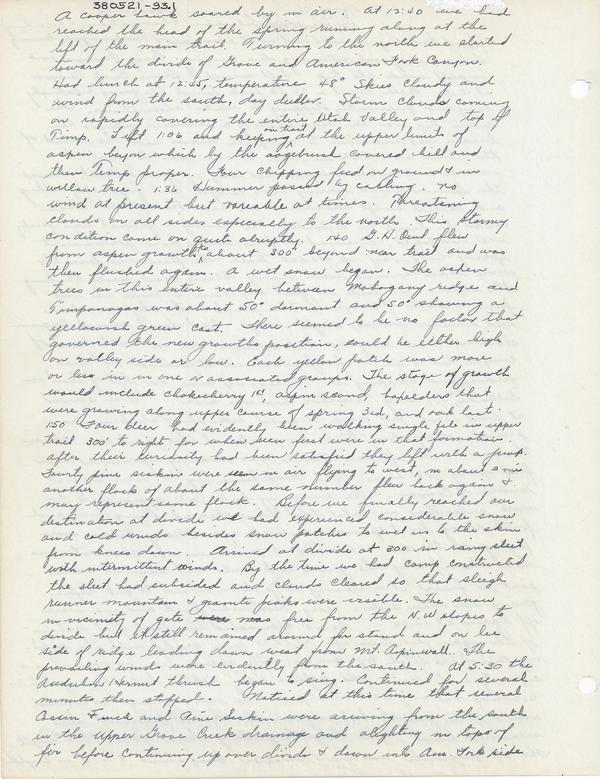 380521-93.1
A cooper hawk soared by in air. At 12:40 we had
reached the head of the spring running along at the
left of the main trail. Turning to the north we started
toward the divide of Grove and American Fork Canyon.
Had lunch at 12:45, temperature 48° Skies cloudy and
wind from the south, day duller. Storm clouds coming
on rapidly covering the entire Utah Valley and top of
Timp. Left 1:06 and keeping on trail at the upper limits of
aspen beyond which by the sagebrush covered hill and
then Timp proper. Four chipping feed on ground & in
willow tree. 1:36 Hummer passed by calling. no
wind at present but variable at times. Threatening
clouds on all sides especially to the north. This stormy
condition came on quite abruptly. 1:40 G.H. Owl flew
from aspen growth to about 300' beyond near trail and was
then flushed again. A wet snow began. The aspen
trees in this entire valley between Mahogany ridges and
Timpanogas was about 50° dormant and 50° showing a
yellowish green cast. There seemed to be no factor that
governed the new growths position, could be either high
on valley side or low. Each yellow patch was more
or less in in one or associated groups. The stage of growth
would include chokecherry 1st, aspin second, boxelders that
were growing along upper course of spring 3rd, and oak last.
1:50 Four deer had evidently been walking single file in upper
trail 300' to right for when seen first were in that formation.
after their curiosity had been satisfied they left with a jump.
Fourty pine siskin were in air flying to west, in about a min
another flock of about the same number flew back again &
may represent same flock. Before we finally reached our
destination at divide we had experienced considerable snow
and cold winds besides snow patches to wet us to the skin
from knees down. Arrived at divide at 300 in rising sleet
with intermittent winds. By the time we had camp constructed
the sleet had subsided and clouds cleared so that sleigh
runner mountain & granite peaks were visible. The snow
in vicinity of gate was free from the N.W slopes to
divide but it still remained around fir stand and on lee
side of ridge leading down west from Mt. Aspinwall. The
prevailing winds were evidently from the south. At 5:30 the
Audubon Hermit thrush began to sing. Continued for several
minutes then stopped. Noticed at this time that several
Cassin Finch and Pine Siskin were arriving from the south
in the upper Grove Creek drainage and alighting in tops of
fir before continuing up over divide & down into Am. Fork side